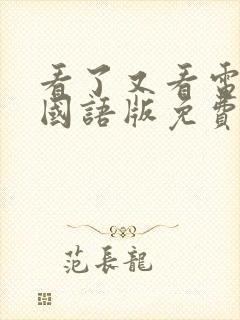 看了又看電
國語版免費
范長龍